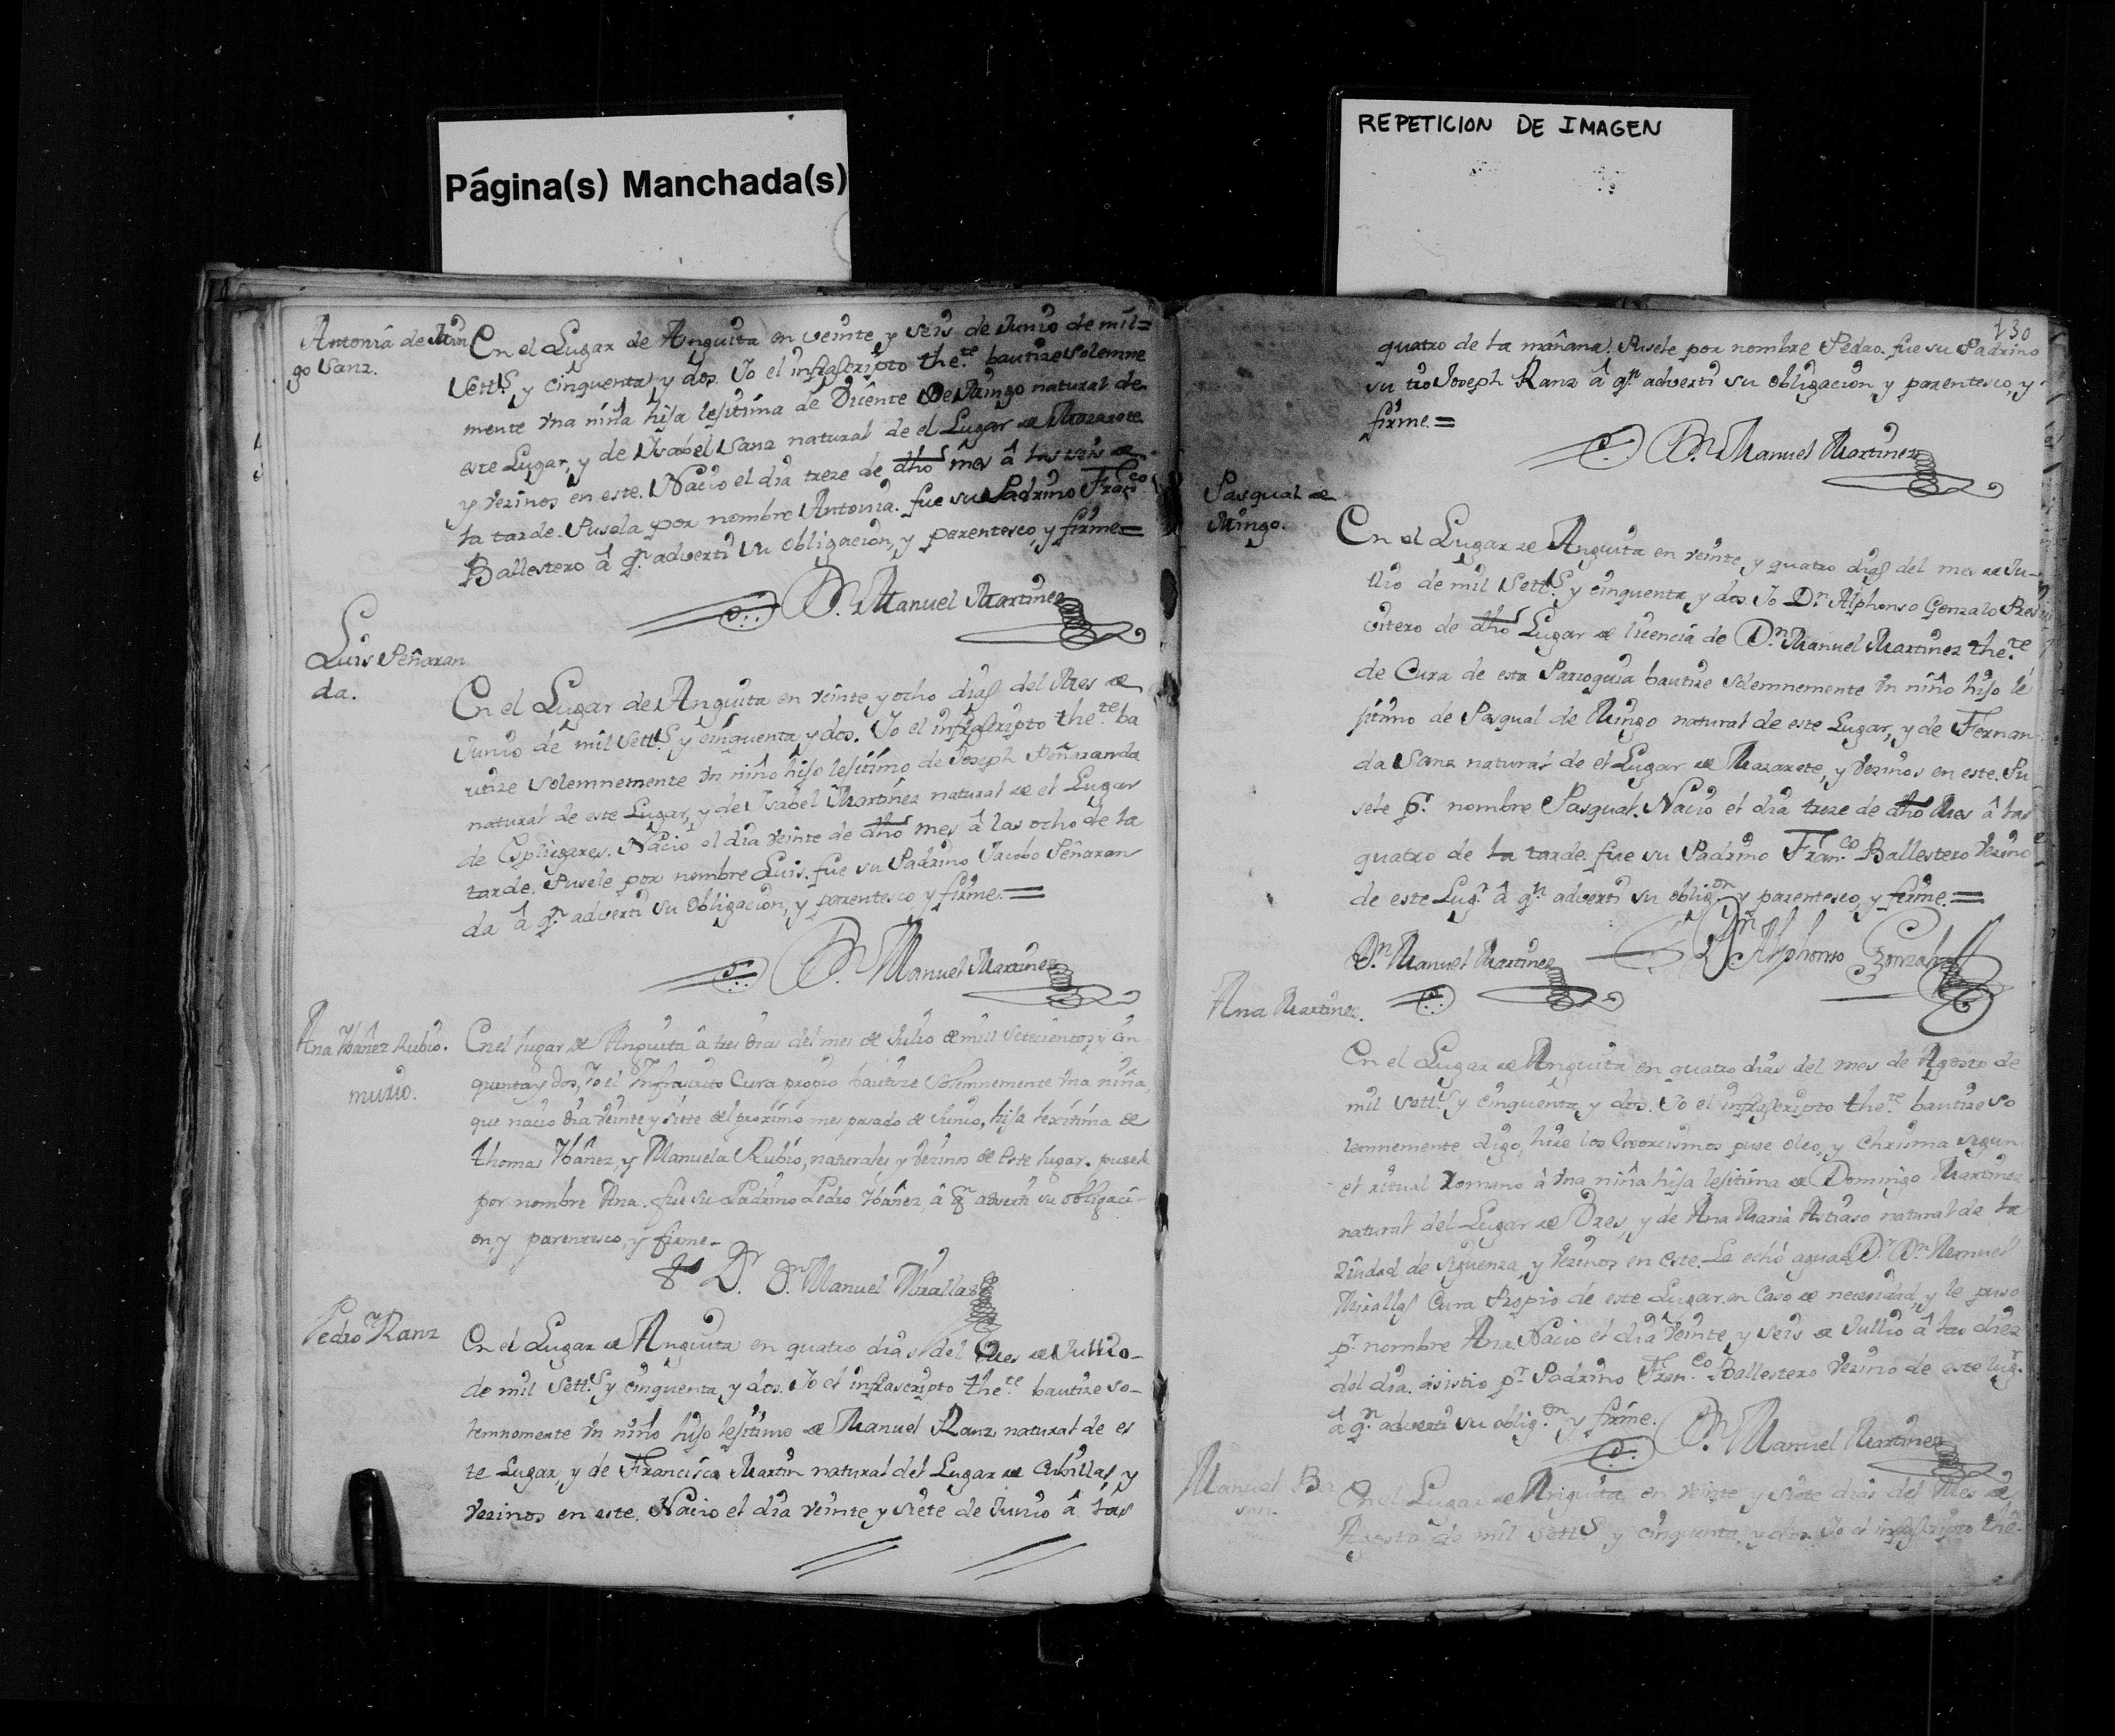 Página(s) Manchada(s)
REPETICION DE IMAGEN
Antonia de Min
go Sanz.
En el Lugar de Anguita en veinte, y seis de Junio de mil=
Settˢ. y cinquenta, y dos. Yo el infrascripto theᵗᵉ. bautize solemne
mente vna niña hija lejitima de Vicente De Mingo natural de
este Lugar, y de Ysabel Sanz natural de el Lugar de Mazarete
y vezinos en este. Nacio el dia treze de dho mes â las seis de
la tarde. Pusela por nombre Antonia. fue su Padrino Franᶜᵒ.
Ballestero â qⁿ. adverti su obligacion, y parentesco, y firme=
Dⁿ. Manuel Martinez
Luis Peñaran
da.
En el Lugar de Anguita en veinte y ocho dias del Mes de
Junio de mil Settˢ. y cinquenta y dos. Yo el infrascripto theᵗᵉ. ba
utize solemnemente vn niño hijo lejitimo de Joseph Peñaranda
natural de este Lugar, y de Ysabel Martinez natural de el Lugar
de Esplegares. Nacio el dia veinte de dho mes â las ocho de la
tarde. Pusele por nombre Luis. fue su Padrino Jacobo Peñaran
da â qⁿ. adverti su obligacion, y parentesco y firme.=
Dⁿ. Manuel Martinez
Ana Ybañez Rubio.
murio.
En el lugar de Anguita â tres dias del mes de Julio de mill setecientos, y cin
quenta y dos, Yo el Infrascrito Cura propio bautize solemnemente vna niña,
que nacio dia veinte y siete del proximo mes pasado de Junio, hija lexitima de
thomas Ybañez, y Manuela Rubio, naturales y vezinos de este lugar. pusele
por nombre Ana. fue su Padrino Pedro Ybañez â qⁿ adverti su obligaci-
on, y parentesco, y firme.
Dʳ. Dⁿ. Manuel Mirallas
Pedro Ranz
En el Lugar de Anguita en quatro dias del Mes de Jullio-
de mil Settˢ. y cinquenta, y dos. Yo el infrascripto theᵗᵉ. bautize so-
lemnemente vn niño hijo lejitimo de Manuel Ranz natural de es
te Lugar, y de Francisca Martin natural del Lugar de Cubillas, y
vezinos en este. Nacio el dia veinte y siete de Junio â las
130
quatro de la mañana. Pusele por nombre Pedro. fue su Padrino
su tio Joseph Ranz â qⁿ. adverti su obligacion, y parentesco, y
firme.=
Dⁿ. Manuel Martinez
Pasqual de
Mingo.
En el Lugar de Anguita en veinte, y quatro dias del mes de Ju-
llio de mil Settˢ. y cinquenta, y dos. Yo Dⁿ. Alphonso Gonzalo Pres
vitero de dho Lugar de licencia de Dⁿ. Manuel Martinez theᵗᵉ.
de Cura de esta Parroquia bautize solemnemente vn niño hijo le
jitimo de Pasqual de Mingo natural de este Lugar, y de Fernan
da Sanz natural de el Lugar de Mazarete, y vezinos en este. Pu
sele pʳ. nombre Pasqual. Nacio el dia treze de dho Mes â las
quatro de la tarde. fue su Padrino Franᶜᵒ. Ballestero vezino
de este Lugʳ. â qⁿ. adverti su obligᵒⁿ. y parentesco, y firme.=
Dⁿ. Manuel Martinez Dⁿ Alphonso Gonzalo
Ana Martinez.
En el Lugar de Anguita en quatro dias del mes de Agosto de
mil Settˢ. y cinquenta, y dos. Yo el infrascripto theᵗᵉ. bautize so
lemnemente, digo, hize los Exorcismos puse oleo, y chrisma segun
el ritual Romano â vna niña hija lejitima de Domingo Martinez
natural del Lugar de Bres, y de Ana Maria natural de la
Ziudad de Siguenza, y vezinos en este. Le echó agua el Dʳ. Dⁿ. Manuel
Mirallas Cura Propio de este Lugar en Caso de necesidad, y le puso
pʳ. nombre Ana. Nacio el dia veinte, y seis de Jullio â las diez
del dia. asistio pʳ. Padrino Franᶜᵒ. Ballestero vezino de este lugʳ.
â qⁿ. adverti su obligᵒⁿ. y firme.
Dⁿ. Manuel Martinez
Manuel
En el Lugar de Anguita en veinte y siete dias del Mes de
Agosto de mil Settˢ y cinquenta, y dos. Yo el infrascripto the